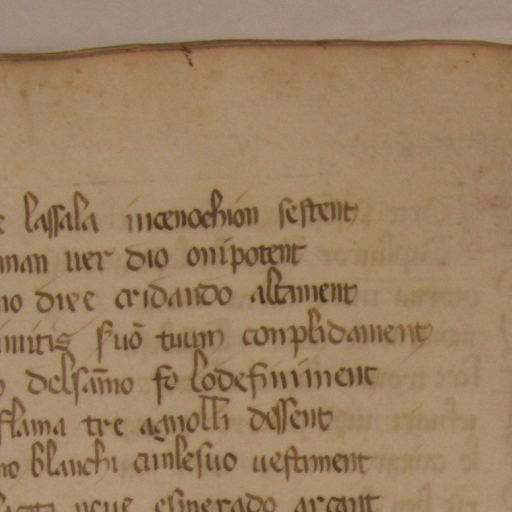 e lassala incenochion sestent
man uer dio onipotent
no dire cridando altament
inutis suo tuum conplidament
o delsãno fo lodefiniment
flama tre agnolli dessent
no blanchi cumlesuo uestiment
neue esmerado arçant